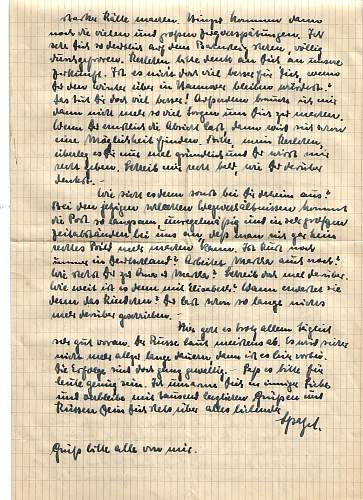 starker Kälte machen. Hinzu kommen dann
noch die vielen und großen Zugverspätungen. Ich
sehe Dich so deutlich auf dem Bahnsteig stehen, völlig
durchgefroren. Liebling bitte denk an Dich an unsere
Zukunft. Ist es nicht doch viel besser für Dich, wenn
Du den Winter über in Hannover bleiben würdest?
Das tut Dir doch viel besser! Außerdem brauch ich mir
dann nicht mehr so viel Sorgen um Dich zu machen.
Wenn Du ernstlich die Absicht hast dann wird sich schon
eine Möglichkeit finden. Bitte, mein
überleg es Dir mal gründlich und Du wirst mir
recht geben. Schreib mir recht bald, wie Du darüber
denkst. -
Wie sieht es denn sonst bei Dir daheim aus?
Bei den jetzigen schlechten Wegeverhältnissen kommt
die Post so langsam unregelmäßig und in sehr großen
Zeitabständen bei uns an, daß man sich gar kein
rechtes Bild mehr machen kann. Ist Kurt noch
immer in Deutschland? Arbeitet Martha auch noch?
Wie stehst Du zu Martha? Schreib doch mal darüber.
Wie weit ist es denn mit Elisabeth? Wann erwartet sie
denn das Kindchen? Du hast schon so lange nichts
mehr darüber geschrieben. -
Hier geht es trotz allem täglich
sehr gut voran. Der Russe haut meistens ab. Es wird sicher
nicht mehr allzu lange dauern, dann ist es hier vorbei.
Die Erfolge sind doch ganz gewaltig. - Laß es bitte für
heute genug sein. Ich umarme Dich in inniger Liebe
und verbleibe mit tausend herzlichen Grüßen und
Küssen Dein Dich stets über alles liebender
Grüß bitte alle von mir.